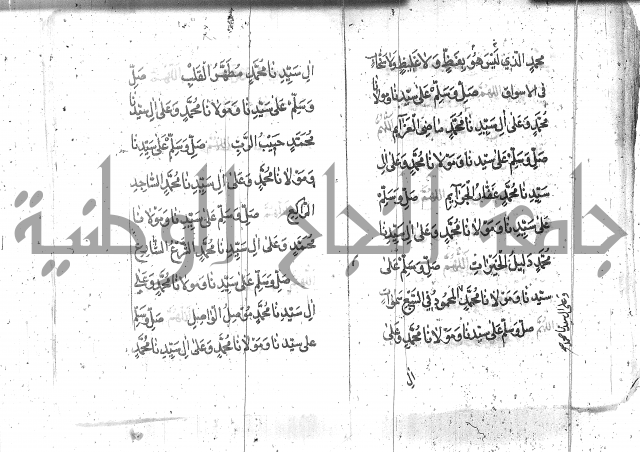 محمد الذي ليس هو بفظ ولا غليظ ولا سخاب
في الاسواق اللهم صل وسلم على سيدنا ومولانا
محمد وعلى ال سيدنا محمد ماحي الجرايم اللهم
صل وسلم على سيدنا ومولانا محمد وعلى ال
سيدنا محمد غفار الجرايم اللهم صل وسلم
على سيدنا ومولانا محمد وعلى ال سيدنا
محمد دليل الخيرات اللهم صل وسلم على
سيدنا ومولانا محمد المحمود في السبع سموات
اللهم صل وسلم على سيدنا ومولانا محمد وعلى
ال
وعلى ال سيدنا محمد
ال سيدنا محمد مطهر القلب اللهم صل
وسلم على سيدنا ومولانا محمد وعلى ال سيدنا
محمد حبيب الرب اللهم صل وسلم على سيدنا
ومولانا محمد وعلى ال سيدنا محمد الساجد
الراكع اللهم صل وسلم على سيدنا ومولانا
محمد وعلى ال سيدنا محمد الشارح
اللهم صل وسلم على سيدنا ومولانا محمد وعلى
ال سيدنا محمد موصل الواصل اللهم صل وسلم
على سيدنا ومولانا محمد وعلى ال سيدنا محمد
جامعة النجاح الوطنية